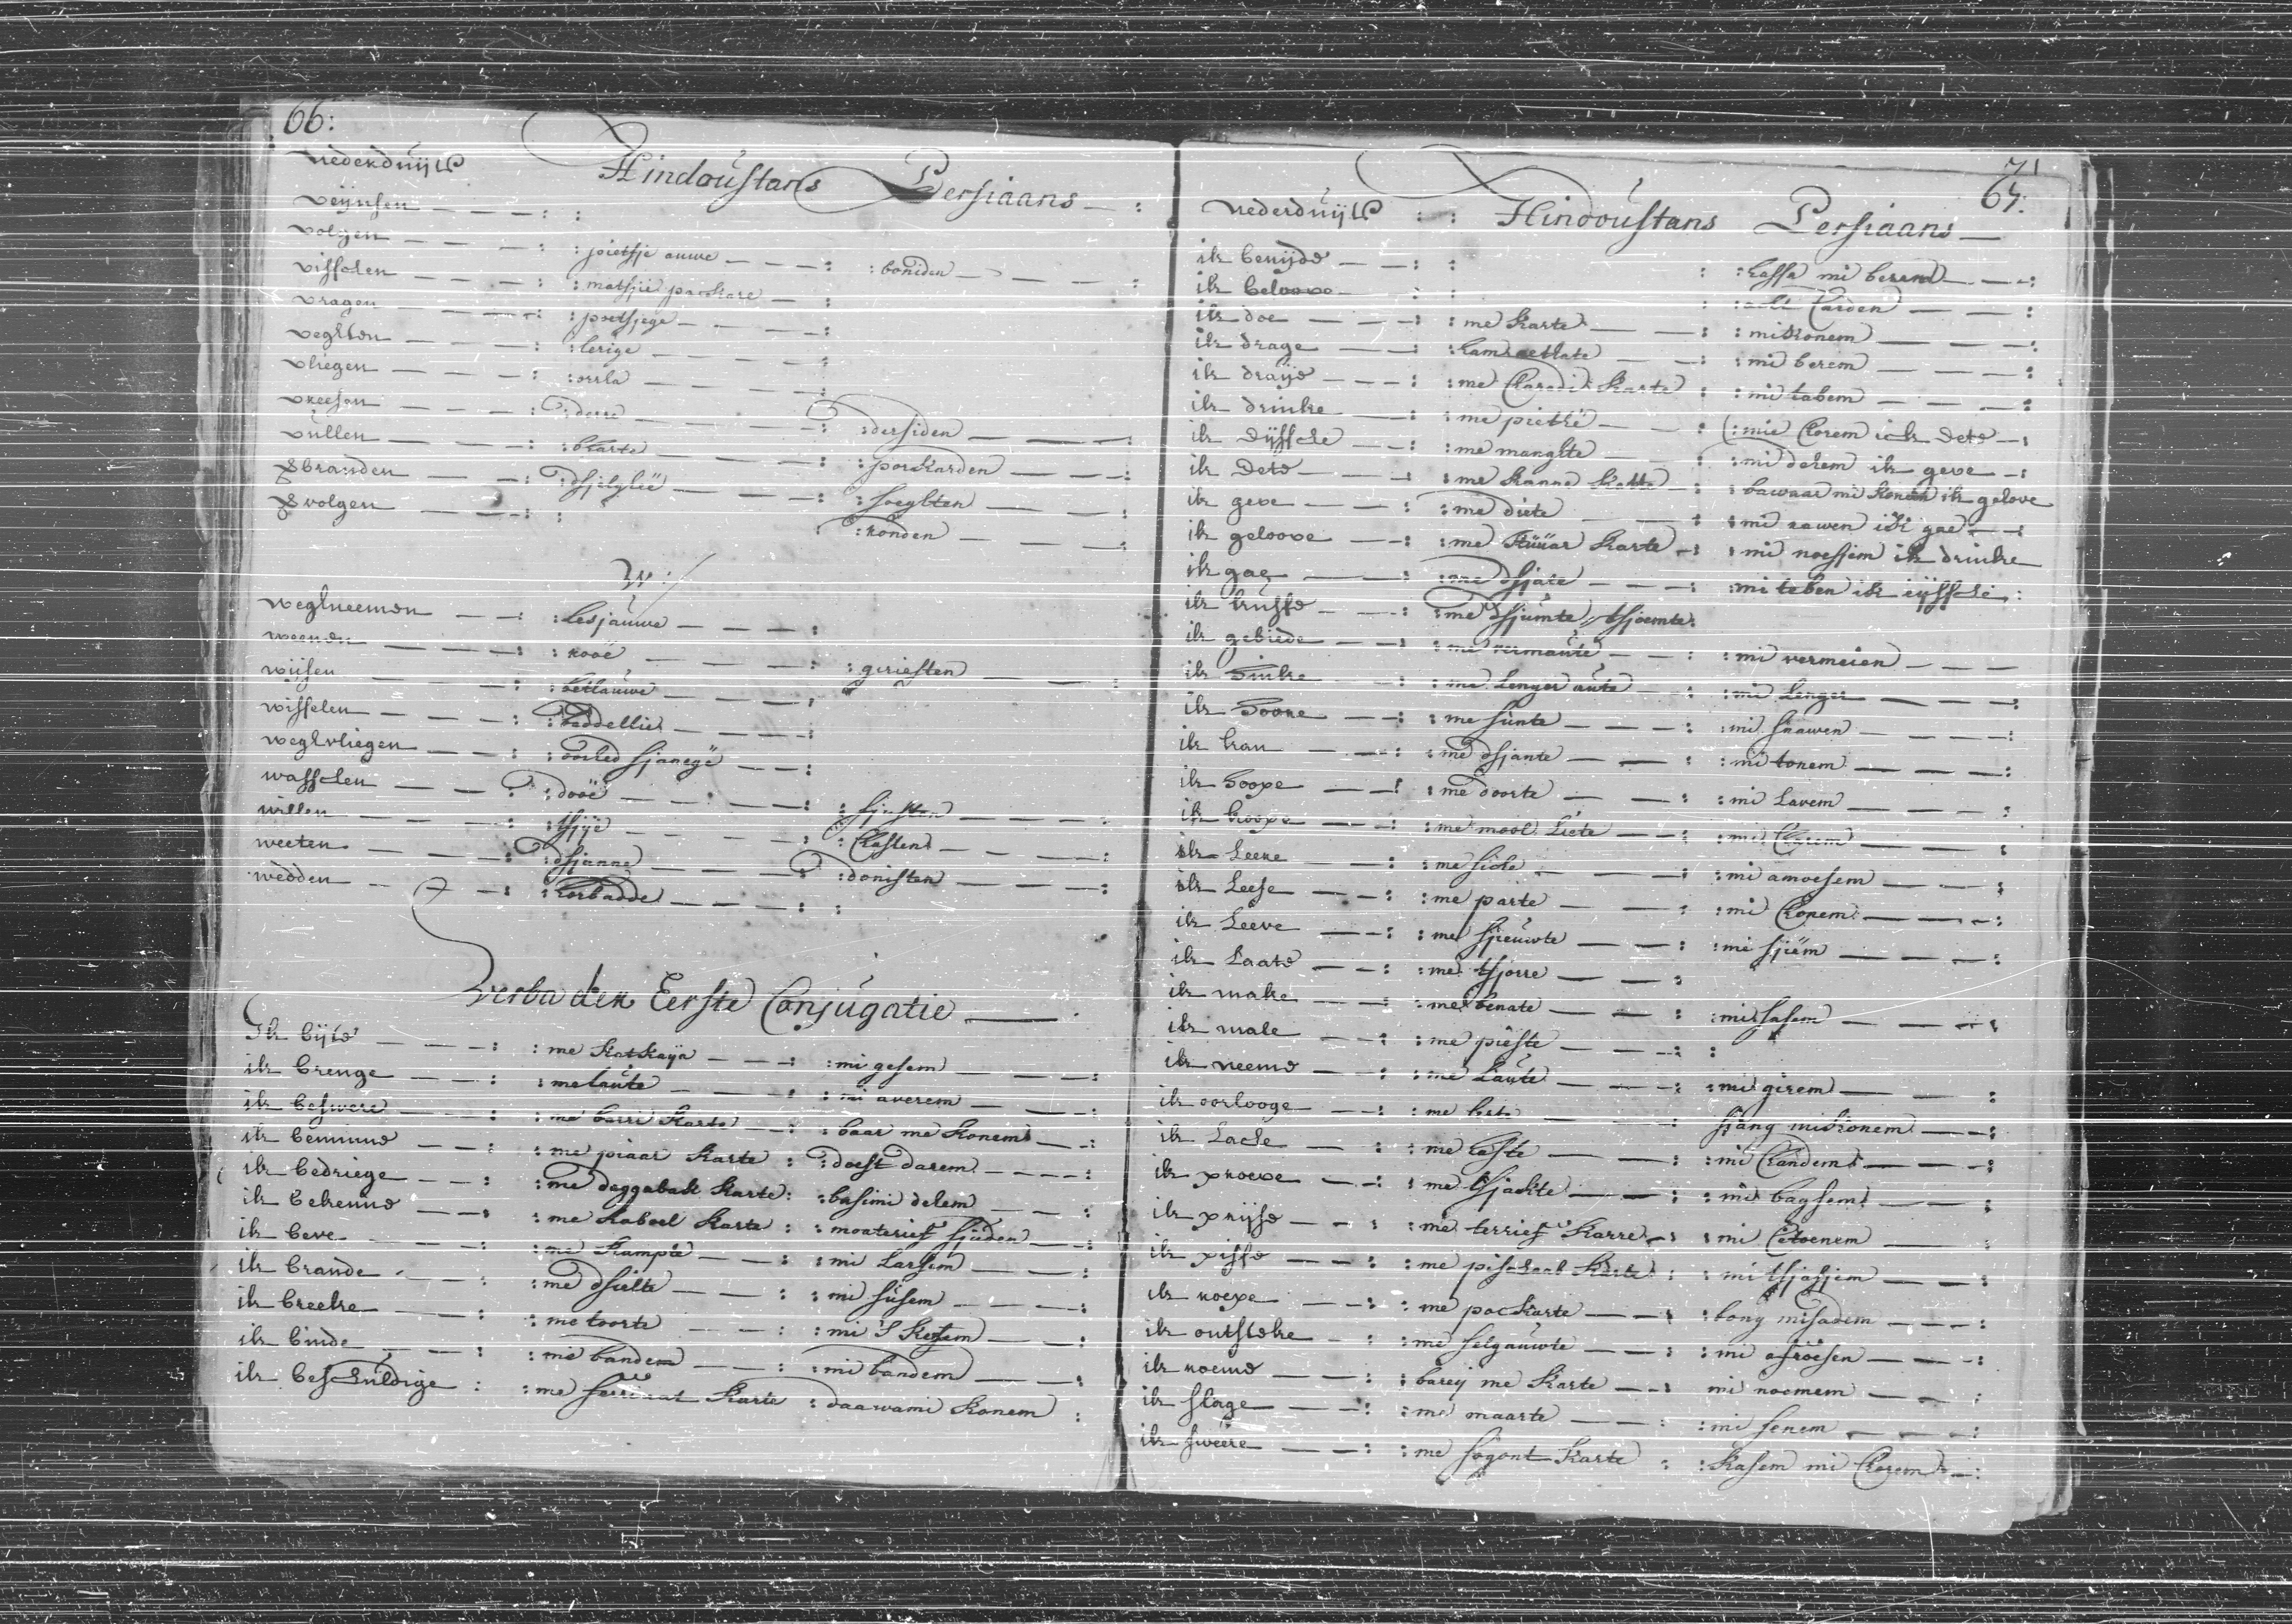 66:
Nederduijts Hindoustans Persiaans
veijnsen
volgen : pietsje auwe : boniden
visschen : matsjie packare
vragen : poetsjege
veghten : lerige
vliegen : orrla
vreesen : derre : dersiden
vullen : bharte : porkarden
branden : dsjelglië : soeghten
volgen : konden
W:
weghneemen : lesjauwe
weenen : rooë : geriesten
wijsen : betlauwe
wisselen : baddellie
weghvliegen : oorled sjanegë
wasschen : dooë : sjusten
willen : tsjÿe : Chasten
weeten : dsjanne : donisten
wedden : horbadde
Verba der Eerste Conjugatie
Ik bijte : me katkaÿa : mi gesem
ik brenge : me laute : mi averem
ik beswere : me barri karte : baar me konem
ik beminne : me piaar karte : doest darem
ik bedriege : me daggabasi karte : basimi delem
ik bekenne : me kaboel karte : moaterief sjieden
ik beve : me kampte : mi larsem
ik brande : me dsielte : mi susem
ik breeke : me toorte : mi S'kesem
ik binde : me bandem : mi bandem
ik beschuldige : me karte : daawami konem
71
67:
Nederduijts : Hindoustans Persiaans
ik benijde : hassa mi berem
ik beloove : Carden
ik doe : me karte : mikonem
ik drage : : mi berem
ik draije : me Charadi karte : mi tabem
ik drinke : me pietke : mie Chorem ick dete
ik Dijssche : me manghte : mi dehem ik geve
ik Dete : me kanna katte : bawaar mi konem ik gelove
ik geve : me diete : mi rawen ik gae
ik geloove : me karte : mi noesjem ik drinke
ik gae : me dsjate : mi teben ik eijssche
ik kusse : me dsjumte, tsjoemte
ik gebiede : me vermaute : mi vermeien
ik Sinke : me lenger aute : mi lenger
ik hoore : me sunte : mi snawen
ik kan : me dsjante : mi tonem
ik loope : me doorte : mi lavem
ik koope : me mool liete : mi Charem
ik leere : me sicke : mi amoesem
ik leese : me parte : mi Chonem
ik leeve : me sjieuwte : mi sjiem
ik laate : me tsjorre
ik make : me benate : mi sasem
ik male : me pieste
ik neeme : me laute : mi girem
ik oorlooge : me : sjang mikonem
ik lache : me haste : mi Chandem
ik proeve : me tsjackte : mi bagsem
ik prijse : me terrief karre : mi
ik pisse : me pischaab karte : mi tsjasjem
ik roepe : me pockarte : bong misadem
ik ontsteke : me selgauwte : mi afroesen
ik noeme : barey me karte : mi noemem
ik slage : me maarte : mi senem
ik sweere : me sogont karte : kasem mi Chorem